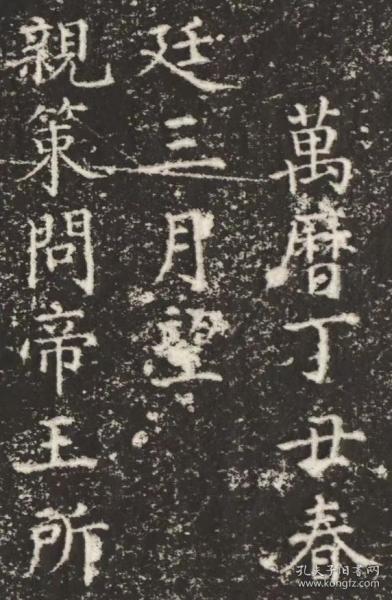 萬曆丁丑春
廷三月望
親策問帝王所
孔夫子旧书网
www.kongfz.com